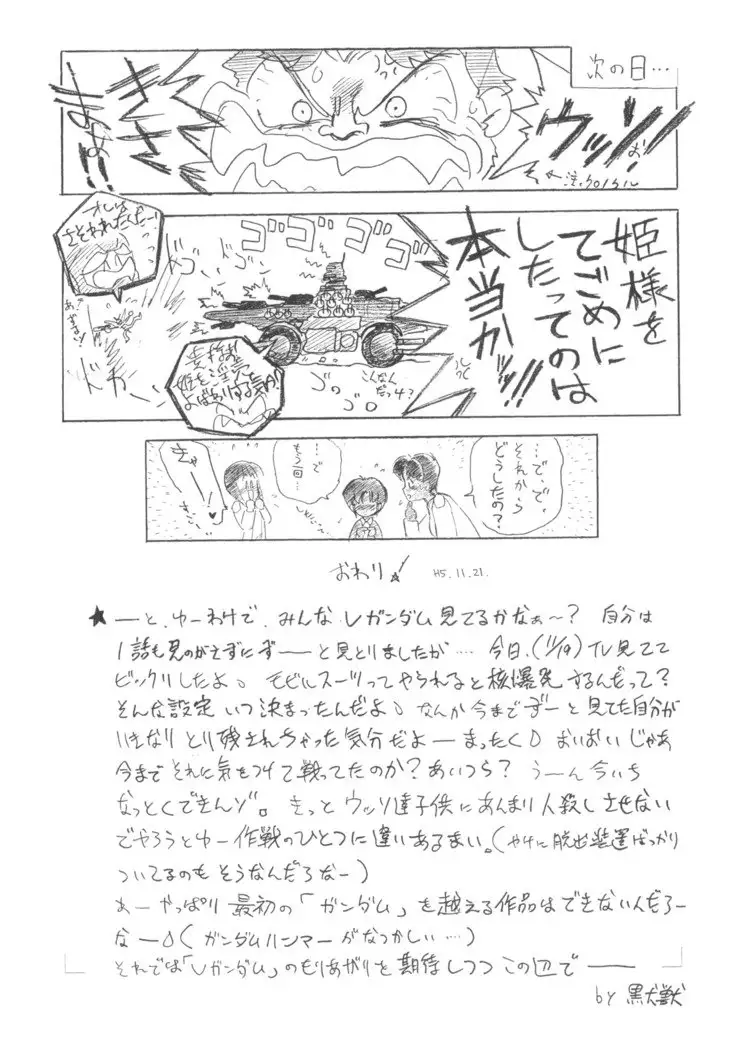 次の日…
ウッソ!!
お!
きさまぁ!!
姫様を
てごめに
したってのは
本当かッ!!!
ゴゴゴゴ
オレは
さそわれたんだー!
ドカァーン
ゴロゴロ
こんなん
だっけ?
…で、で、
それから
どうしたの?
…で
もう一回…
きゃーーー!
おわり
H5.11.21.
★ ーと、ゆーわけで、みんなVガンダム見てるかなぁ〜? 自分は
1話も見のがえずにずーーと見とりましたが… 今日、(11/19) TV見てて
ビックリしたよ。モビルスーツってやられると核爆発するんだって?
そんな設定いつ決まったんだよ。なんか今までずーと見てた自分が
いきなりとり残されちゃった気分だよーまったく。おいおいじゃあ
今までそれに気をつけて戦ってたのか? あいつら? うーん今いち
なっとくできんゾ。きっとウッソ達子供にあんまり人殺しさせない
でやろうとゆー作戦のひとつに違いあるまい。(やけに脱出装置ばっかり
ついてるのもそうなんだろなー)
あーやっぱり最初の「ガンダム」を越える作品はできないんだろー
なー(ガンダムハンマーがなつかしい…)
それでは「Vガンダム」のもりあがりを期待しつつこの辺でーー
by 黒犬獣